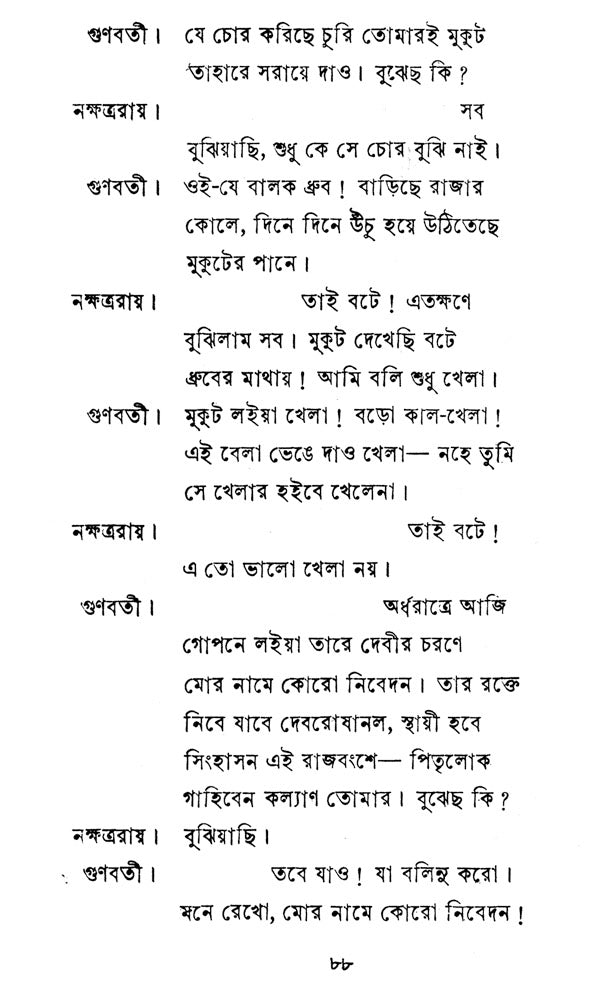 গুণবতী। যে চোর করিছে চুরি তোমারই মুকুট
তাহারে সরায়ে দাও। বুঝেছ কি?
নক্ষত্ররায়। সব
বুঝিয়াছি, শুধু কে সে চোর বুঝি নাই।
গুণবতী। ওই-যে বালক ধ্রুব! বাড়িছে রাজার
কোলে, দিনে দিনে উঁচু হয়ে উঠিতেছে
মুকুটের পানে।
নক্ষত্ররায়। তাই বটে! এতক্ষণে
বুঝিলাম সব। মুকুট দেখেছি বটে
ধ্রুবের মাথায়! আমি বলি শুধু খেলা।
গুণবতী। মুকুট লইয়া খেলা! বড়ো কাল-খেলা!
এই বেলা ভেঙে দাও খেলা— নহে তুমি
সে খেলার হইবে খেলেনা।
নক্ষত্ররায়। তাই বটে!
এ তো ভালো খেলা নয়।
গুণবতী। অর্ধরাত্রে আজি
গোপনে লইয়া তারে দেবীর চরণে
মোর নামে কোরো নিবেদন। তার রক্তে
নিবে যাবে দেবরোষানল, স্থায়ী হবে
সিংহাসন এই রাজবংশে— পিতৃলোক
গাহিবেন কল্যাণ তোমার। বুঝেছ কি?
নক্ষত্ররায়। বুঝিয়াছি।
গুণবতী। তবে যাও! যা বলিনু করো।
মনে রেখো, মোর নামে কোরো নিবেদন!
৮৮